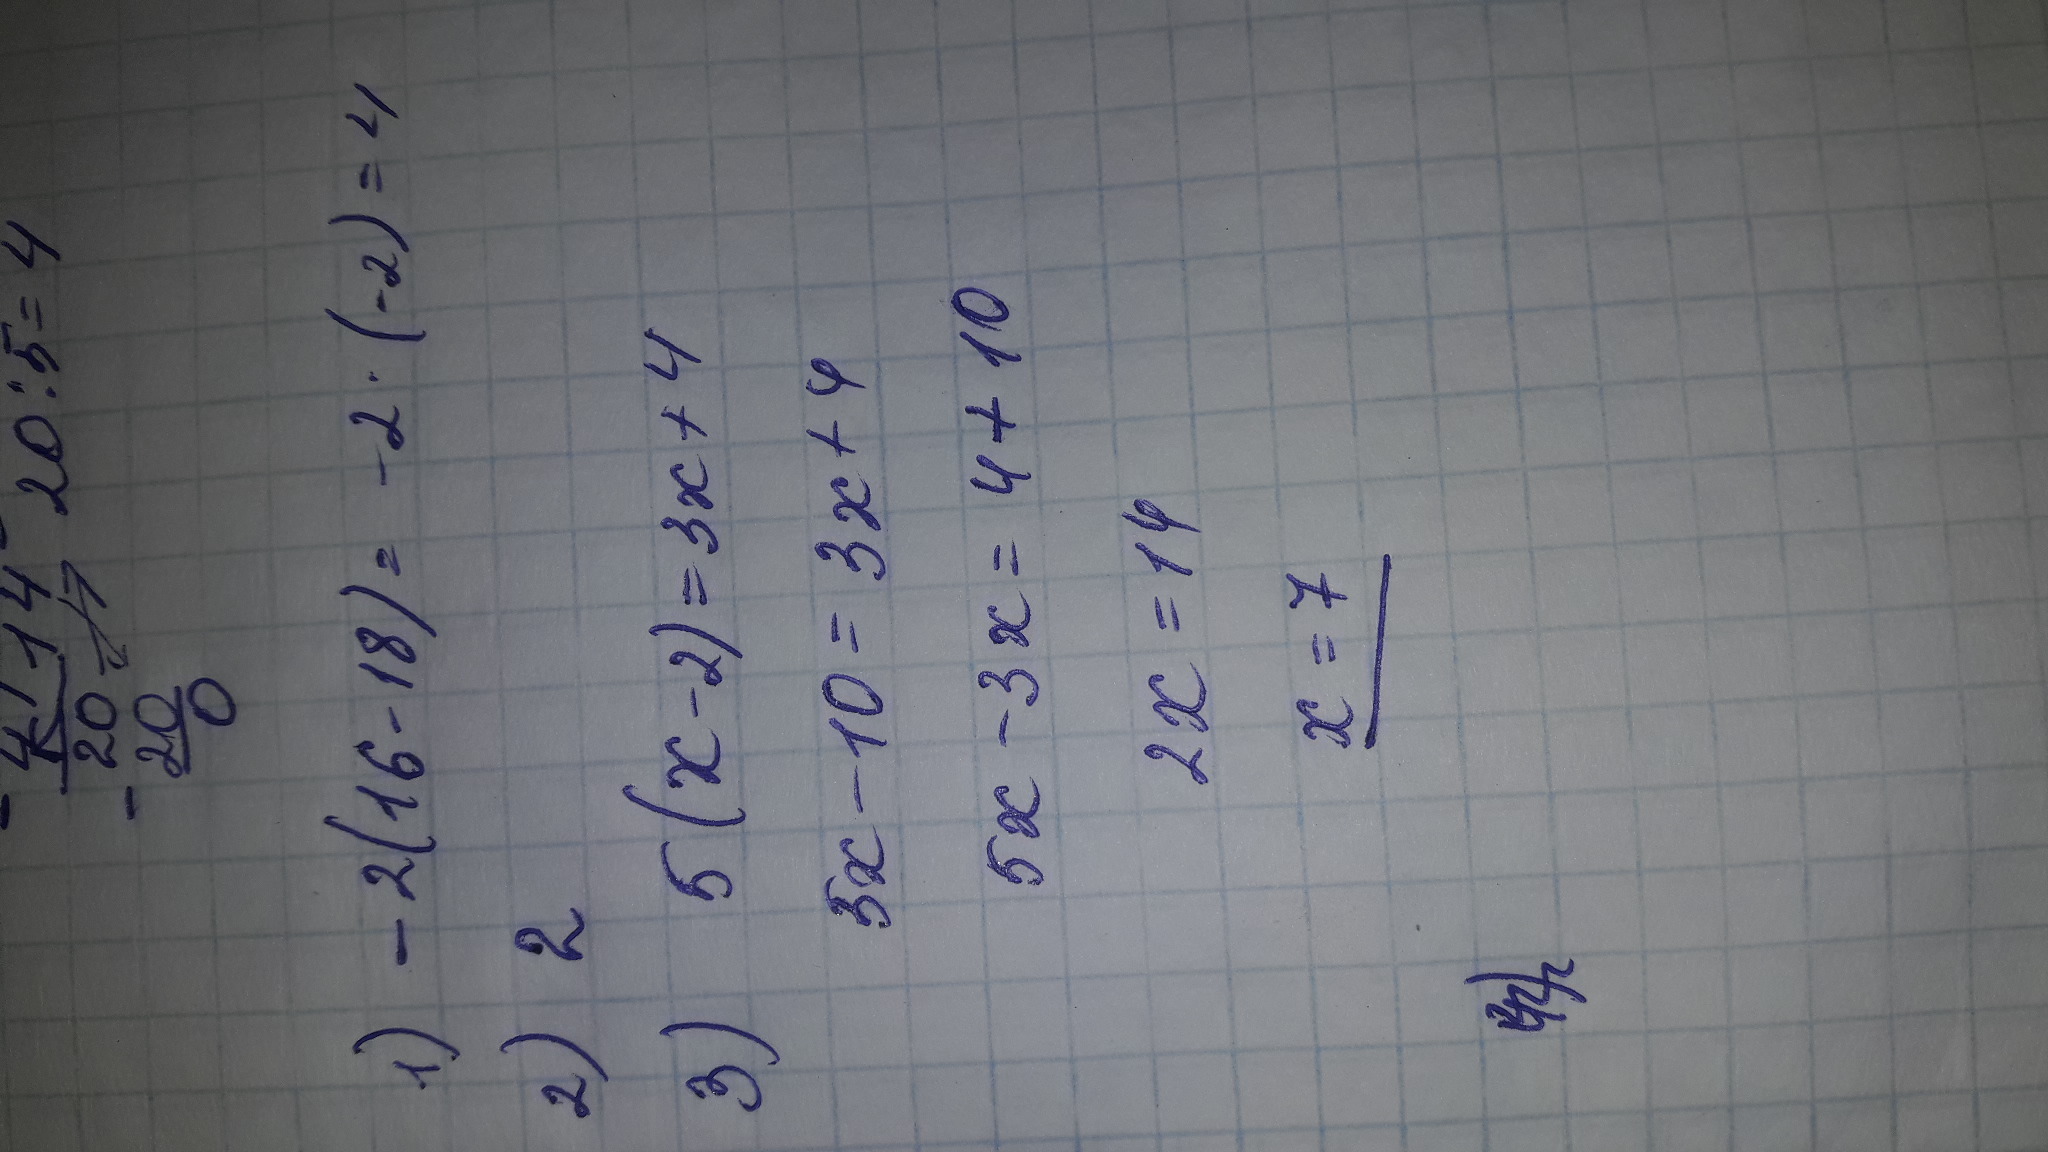 20:5=4
14
20
20
0
1) -2(16-18)= -2·(-2)=4
2) 2
3) 5(x-2)=3x+4
5x-10=3x+4
5x-3x=4+10
2x=14
x=7